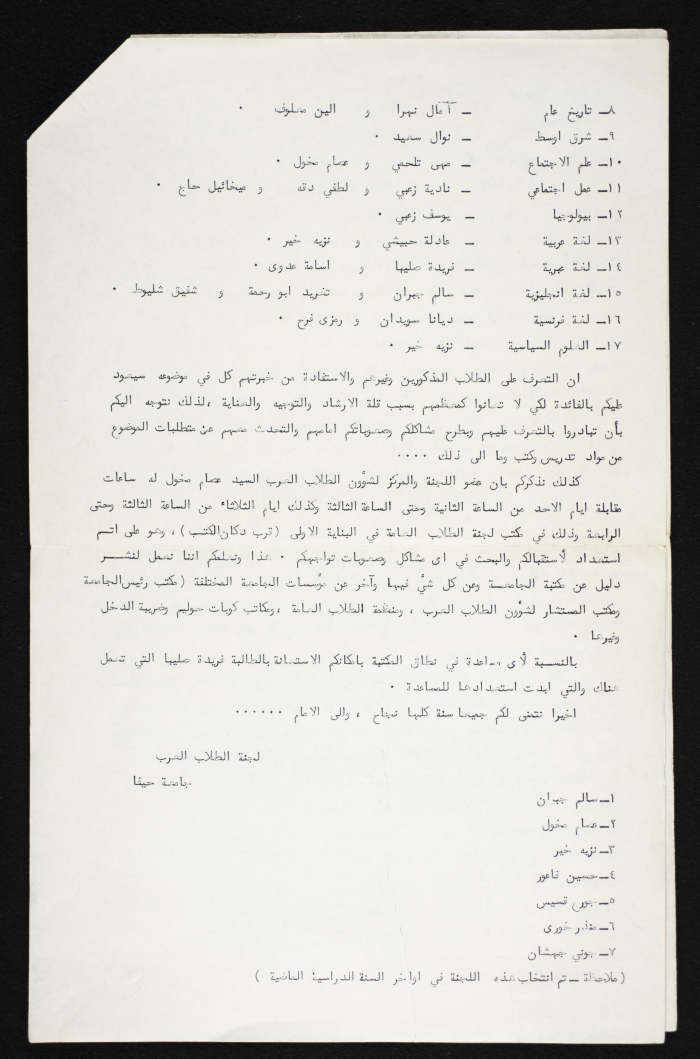 ٨ــ تاريخ عام ــ آمال نهرا و الين معلوف .
٩ــ شرق اوسط ــ نوال سعيد .
١٠ــ علم الاجتماع ــ مهى تلحمي و عصام مخول .
١١ــ عمل اجتماعي ــ نادية زعبي و لطفي دقه و ميخائيل حاج .
١٢ــ بيولوجيا ــ يوسف زعبي .
١٣ــ لغة عربية ــ عادلة حبيشي و نزيه خير .
١٤ــ لغة عبرية ــ فريدة صليبا و اسامة عدوى .
١٥ــ لغة انجليزية ــ سالم جبران و تغريد ابو رحمة و شفيق شليوط .
١٦ــ لغة فرنسية ــ ديانا سويدان و رمزى فرح .
١٧ــ العلوم السياسية ــ نزيه خير .
ان التعرف على الطلاب المذكورين وغيرهم والاستفادة من خبرتهم كل في موضوعه سيعود
عليكم بالفائدة لكي لا تعانوا كمعظمهم بسبب قلة الارشاد والتوجيه والعناية ،لذلك نتوجه اليكم
بأن تبادروا بالتعرف عليهم وبطرح مشاكلكم وصعوباتكم امامهم والتحدث معهم عن متطلبات الموضوع
من مواد تدريس وكتب وما الى ذلك ....
كذلك نذكركم بان عضو اللجنة والمركز لشؤون الطلاب العرب السيد عصام مخول له ساعات
مقابلة ايام الاحد من الساعة الثانية وحتى الساعة الثالثة وكذلك ايام الثلاثاء من الساعة الثالثة وحتى
الرابعة وذلك في مكتب لجنة الطلاب العامة في البناية الاولى (قرب دكان الكتب) ، وهو على اتم
استعداد لأستقبالكم والبحث في اى مشاكل وصعوبات تواجهكم . هذا ونعلمكم اننا نعمل لنشـــر
دليل عن مكتبة الجامعـة وعن كل شئ فيها وآخر عن مؤسسات الجامعة المختلفة (مكتب رئيس الجامعة
ومكتب المستشار لشؤون الطلاب العرب ، ومنظمة الطلاب العامة ،ومكاتب كوبات حوليم وضريبة الدخل
وغيرها .
بالنسبة لأى مساعدة في نطاق المكتبة بامكانكم الاستعانة بالطالبة فريدة صليبا التي تعمل
هناك والتي ابدت استعدادها للمساعدة .
اخيرا نتمنى لكم جميعا سنة كلها نجاح ، والى الامام ......
لجنة الطلاب العرب
جامعة حيفا
١ــ سالم جبران
٢ــ عصام مخول
٣ــ نزيه خير
٤ــ حسين فاعور
٥ــ جورج قسيس
٦ــ منذر خورى
٧ــ جوني جهشان
(ملاحظة ــ تم انتخاب هذه اللجنة في اواخر السنة الدراسية الماضية )